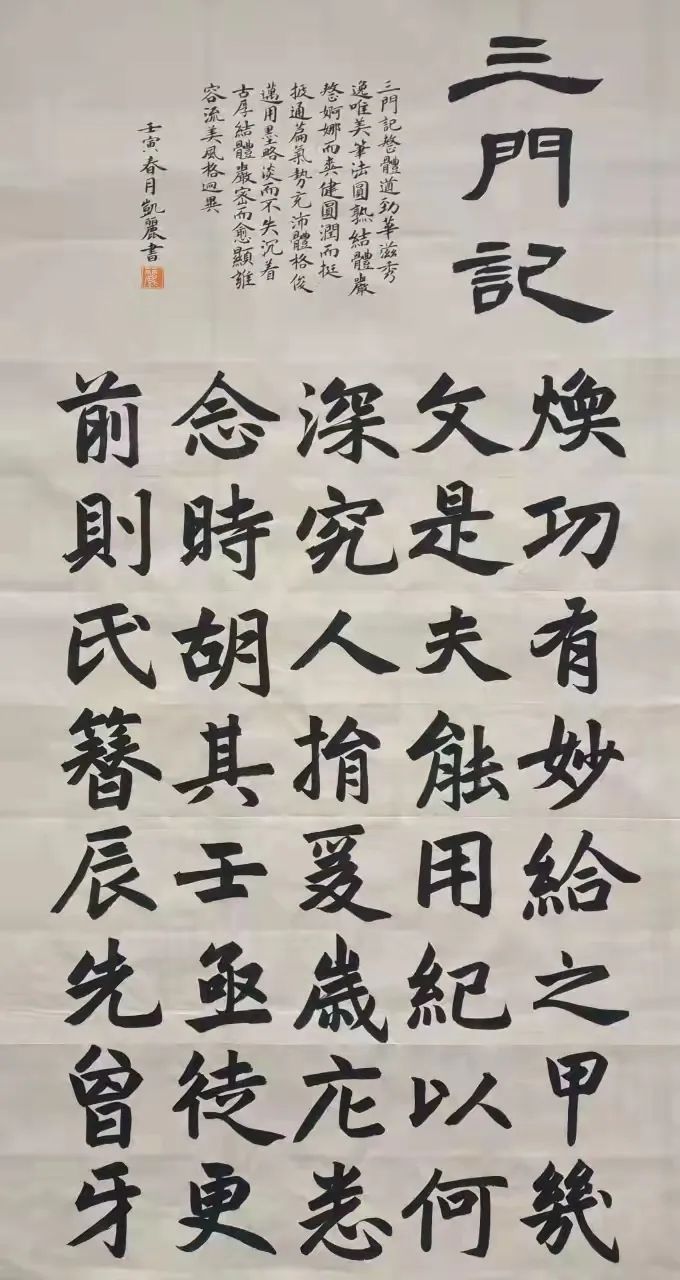 三門記
三門記楷體道劲華滋秀
逸唯美筆法圓熟結體嚴
整婀娜而爽健圓潤而挺
拔通篇氣勢充沛體格俊
邁用墨略淡而不失沉着
古厚結體嚴密而愈顯雍
容流美風格迥異
壬寅春月凱麗書
煥功有妙給之甲幾
文是夫能用紀以何
深究人揹爰歲庀悉
念時胡其壬亟徒更
前則氏簪辰先曾牙